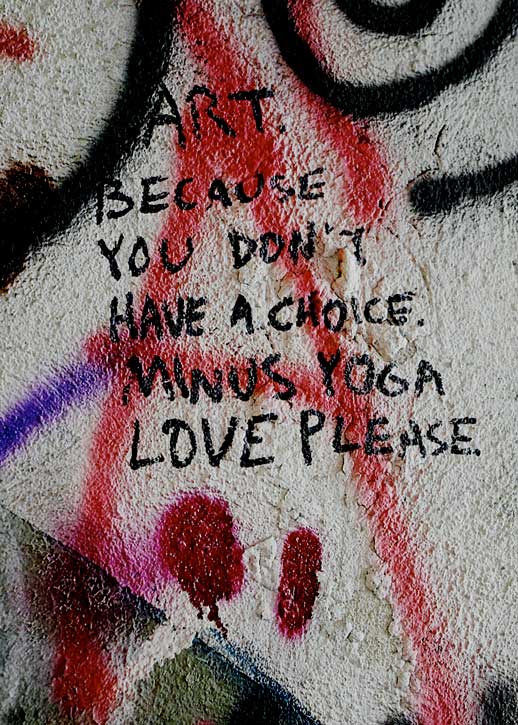 ART.
BECAUSE
YOU DON'T
HAVE A CHOICE.
MINUS YOGA
LOVE PLEASE.